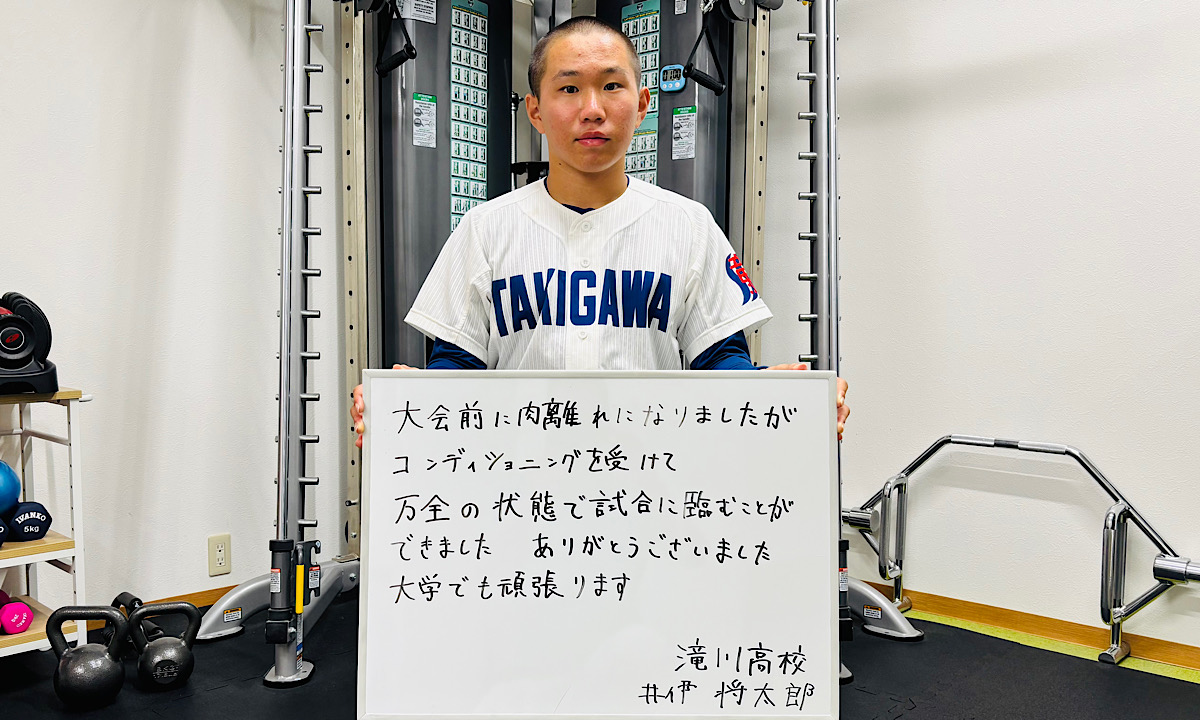 TAKIGAWA
大会前に肉離れになりましたが
コンディショニングを受けて
万全の状態で試合に臨むことが
できました ありがとうございました
大学でも頑張ります
滝川高校
井伊 将太郎
IVANKO
5kg